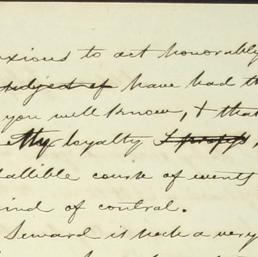 nxious to act honorably
subject of have had th
you will know, & that
my loyalty I propose,
fallible course of events
kind of control.
Seward is such a very